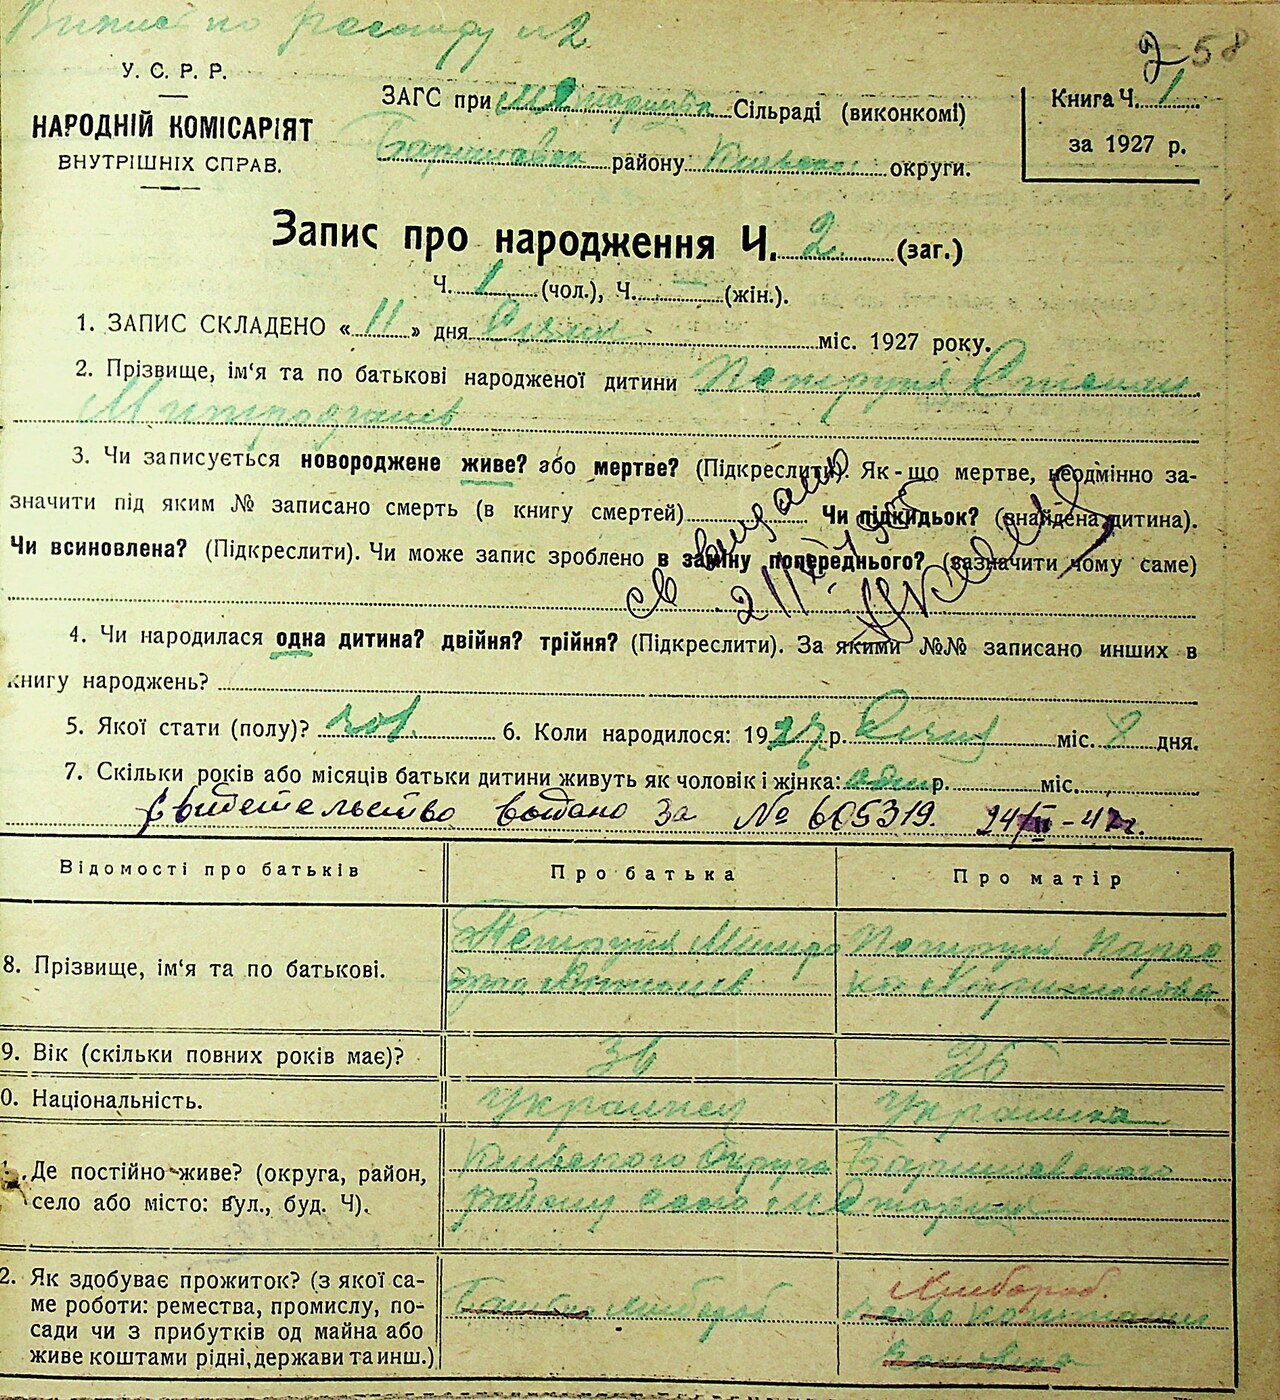 У. С. Р. Р.
НАРОДНІЙ КОМІСАРІЯТ
ВНУТРІШНІХ СПРАВ.
ЗАГС при Сільраді (виконкомі)
району округи.
58
Книга Ч. 1
за 1927 р.
Запис про народження Ч. 2 (заг.)
Ч. 1 (чол.), Ч. (жін.).
1. ЗАПИС СКЛАДЕНО « 11 » дня Січня міс. 1927 року.
2. Прізвище, ім'я та по батькові народженої дитини Петруня Степан
Митрофанів
3. Чи записується новороджене живе? або мертве? (Підкреслити). Як-що мертве, неодмінно за-
значити під яким № записано смерть (в книгу смертей) Чи підкидьок? (знайдена дитина).
Чи всиновлена? (Підкреслити). Чи може запис зроблено в заміну попереднього? (зазначити чому саме)
4. Чи народилася одна дитина? двійня? трійня? (Підкреслити). За якими №№ записано инших в
книгу народжень?
5. Якої стати (полу)? чов. 6. Коли народилося: 1927 р. Січня міс. 8 дня.
7. Скільки років або місяців батьки дитини живуть як чоловік і жінка: р. міс.
Свидетельство выдано за № 605319.
Відомості про батьків
Про батька
Про матір
8. Прізвище, ім'я та по батькові.
Петруня Митро
Петруня Парас
9. Вік (скільки повних років має)?
36
26
0. Національність.
Українец
Українка
Де постійно живе? (округа, район,
село або місто: вул., буд. Ч).
Київского Округа Баришевского
району село
2. Як здобуває прожиток? (з якої са-
ме роботи: ремества, промислу, по-
сади чи з прибутків од майна або
живе коштами рідні, держави та инш.)
хлібороб
Хлібороб.